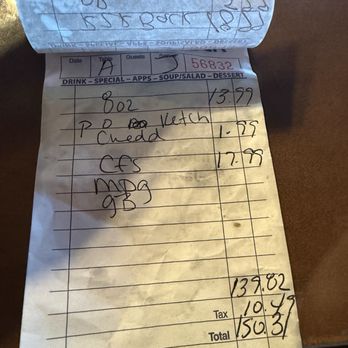 Date Guests
A J 56832
DRINK – SPECIAL – APPS – SOUP/SALAD – DESSERT
8oz 13.99
PO Ketch
Chedd 1.99
CFS 17.99
MPG
GB
139.82
Tax 10.49
Total 150.31